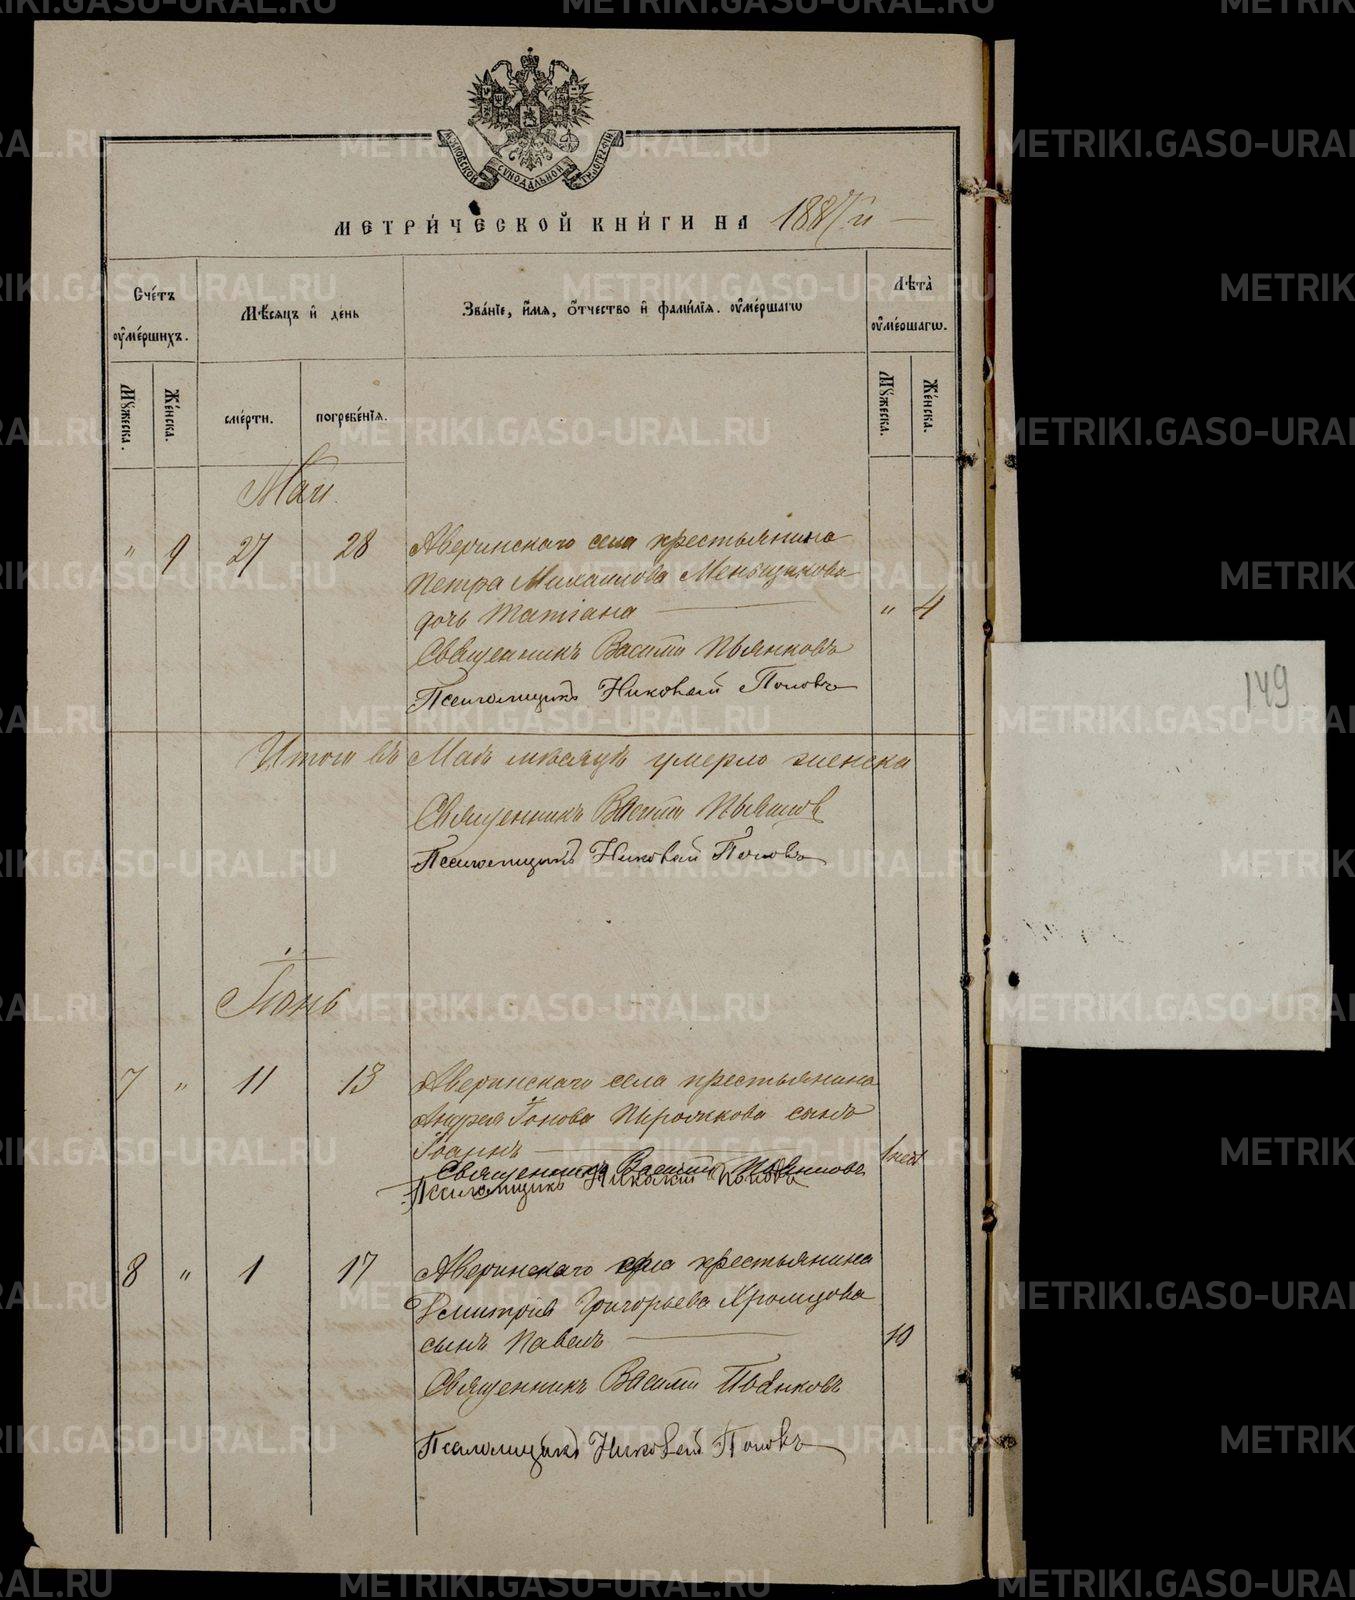 МОСКОВСКОЙ СѴНОДАЛЬНОЙ ТИПОГРАФІИ
МЕТРИ́ЧЕСКОЙ КНИ́ГИ НА 1887й
Сче́тъ ᲂу҆ме́ршихъ.
Мѣ́сяцъ и҆ де́нь
Зва́нїе, и҆́мя, ѻ҆́тчество и҆ фами́лїя. ᲂу҆ме́ршагѡ
Лѣта̀ ᲂу҆ме́ршагѡ.
Мꙋ́жеска.
Же́нска.
сме́рти.
погребе́нїя.
Мꙋ́жеска.
Же́нска.
Май
" 9 27 28 Аверинскаго села крестьянина
Петра Михаилова Меньщикова
дочь Татіана " 4
Священникъ Василій Пьянковъ
Псаломщикъ Николай Поповъ
Итого въ Маѣ мѣсяцѣ умерло женска
Священникъ Василій Пьянков
Псаломщикъ Николай Поповъ
Іюнь
7 " 11 13 Аверинскаго села крестьянина
Андрея Іонова сынъ
Іоаннъ
Священникъ Василій Пьянковъ
Псаломщикъ Николай Поповъ
8 " 1 17 Аверинскаго села крестьянина
Димитрія Григорьева Хромцова
сынъ Павелъ 19
Священникъ Василій Пьянковъ
Псаломщикъ Николай Поповъ
149
METRIKI.GASO-URAL.RU